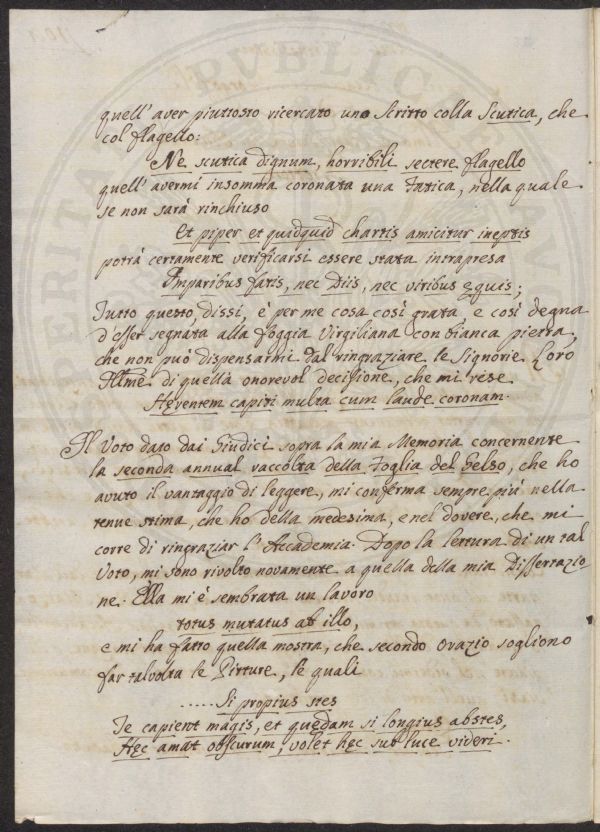 quell' aver piuttosto ricercato uno scritto colla Scutica, che
col flagello:
Ne scutica dignum, horribili sectere flagello
quell' avermi insomma coronata una Fatica, nella quale
se non sarà rinchiuso
Et piper et quidquid chartis amicitur ineptis
potrà certamente verificarsi essere stata intrapresa
Imparibus fatis, nec Diis, nec viribus equis;
Tutto questo, dissi, è per me cosa così grata, e così degna
d'esser segnata alla foggia Virgiliana con bianca pietra,
che non può dispensarmi dal ringraziare le Signorie Loro
Illme di quella onorevol decisione, che mi rese
Hęrentem capiti multa cum laude coronam.
Il Voto dato dai Giudici sopra la mia Memoria concernente
la seconda annual raccolta della Foglia del Gelso, che ho
avuto il vantaggio di leggere, mi conferma sempre più nella
tenue stima, che ho della medesima, e nel dovere, che mi
corre di ringraziar l'Accademia. Dopo la lettura di un tal
Voto, mi sono rivolto novamente a quella della mia Dissertazio-
ne. Ella mi è sembrata un lavoro
totus mutatus ab illo,
e mi ha fatto quella mostra, che secondo Orazio sogliono
far talvolta le Pitture, le quali
..... Si propius stes
Te capient magis, et quędam si longius abstes,
Hęc amat obscurum, volet hęc sub luce videri.